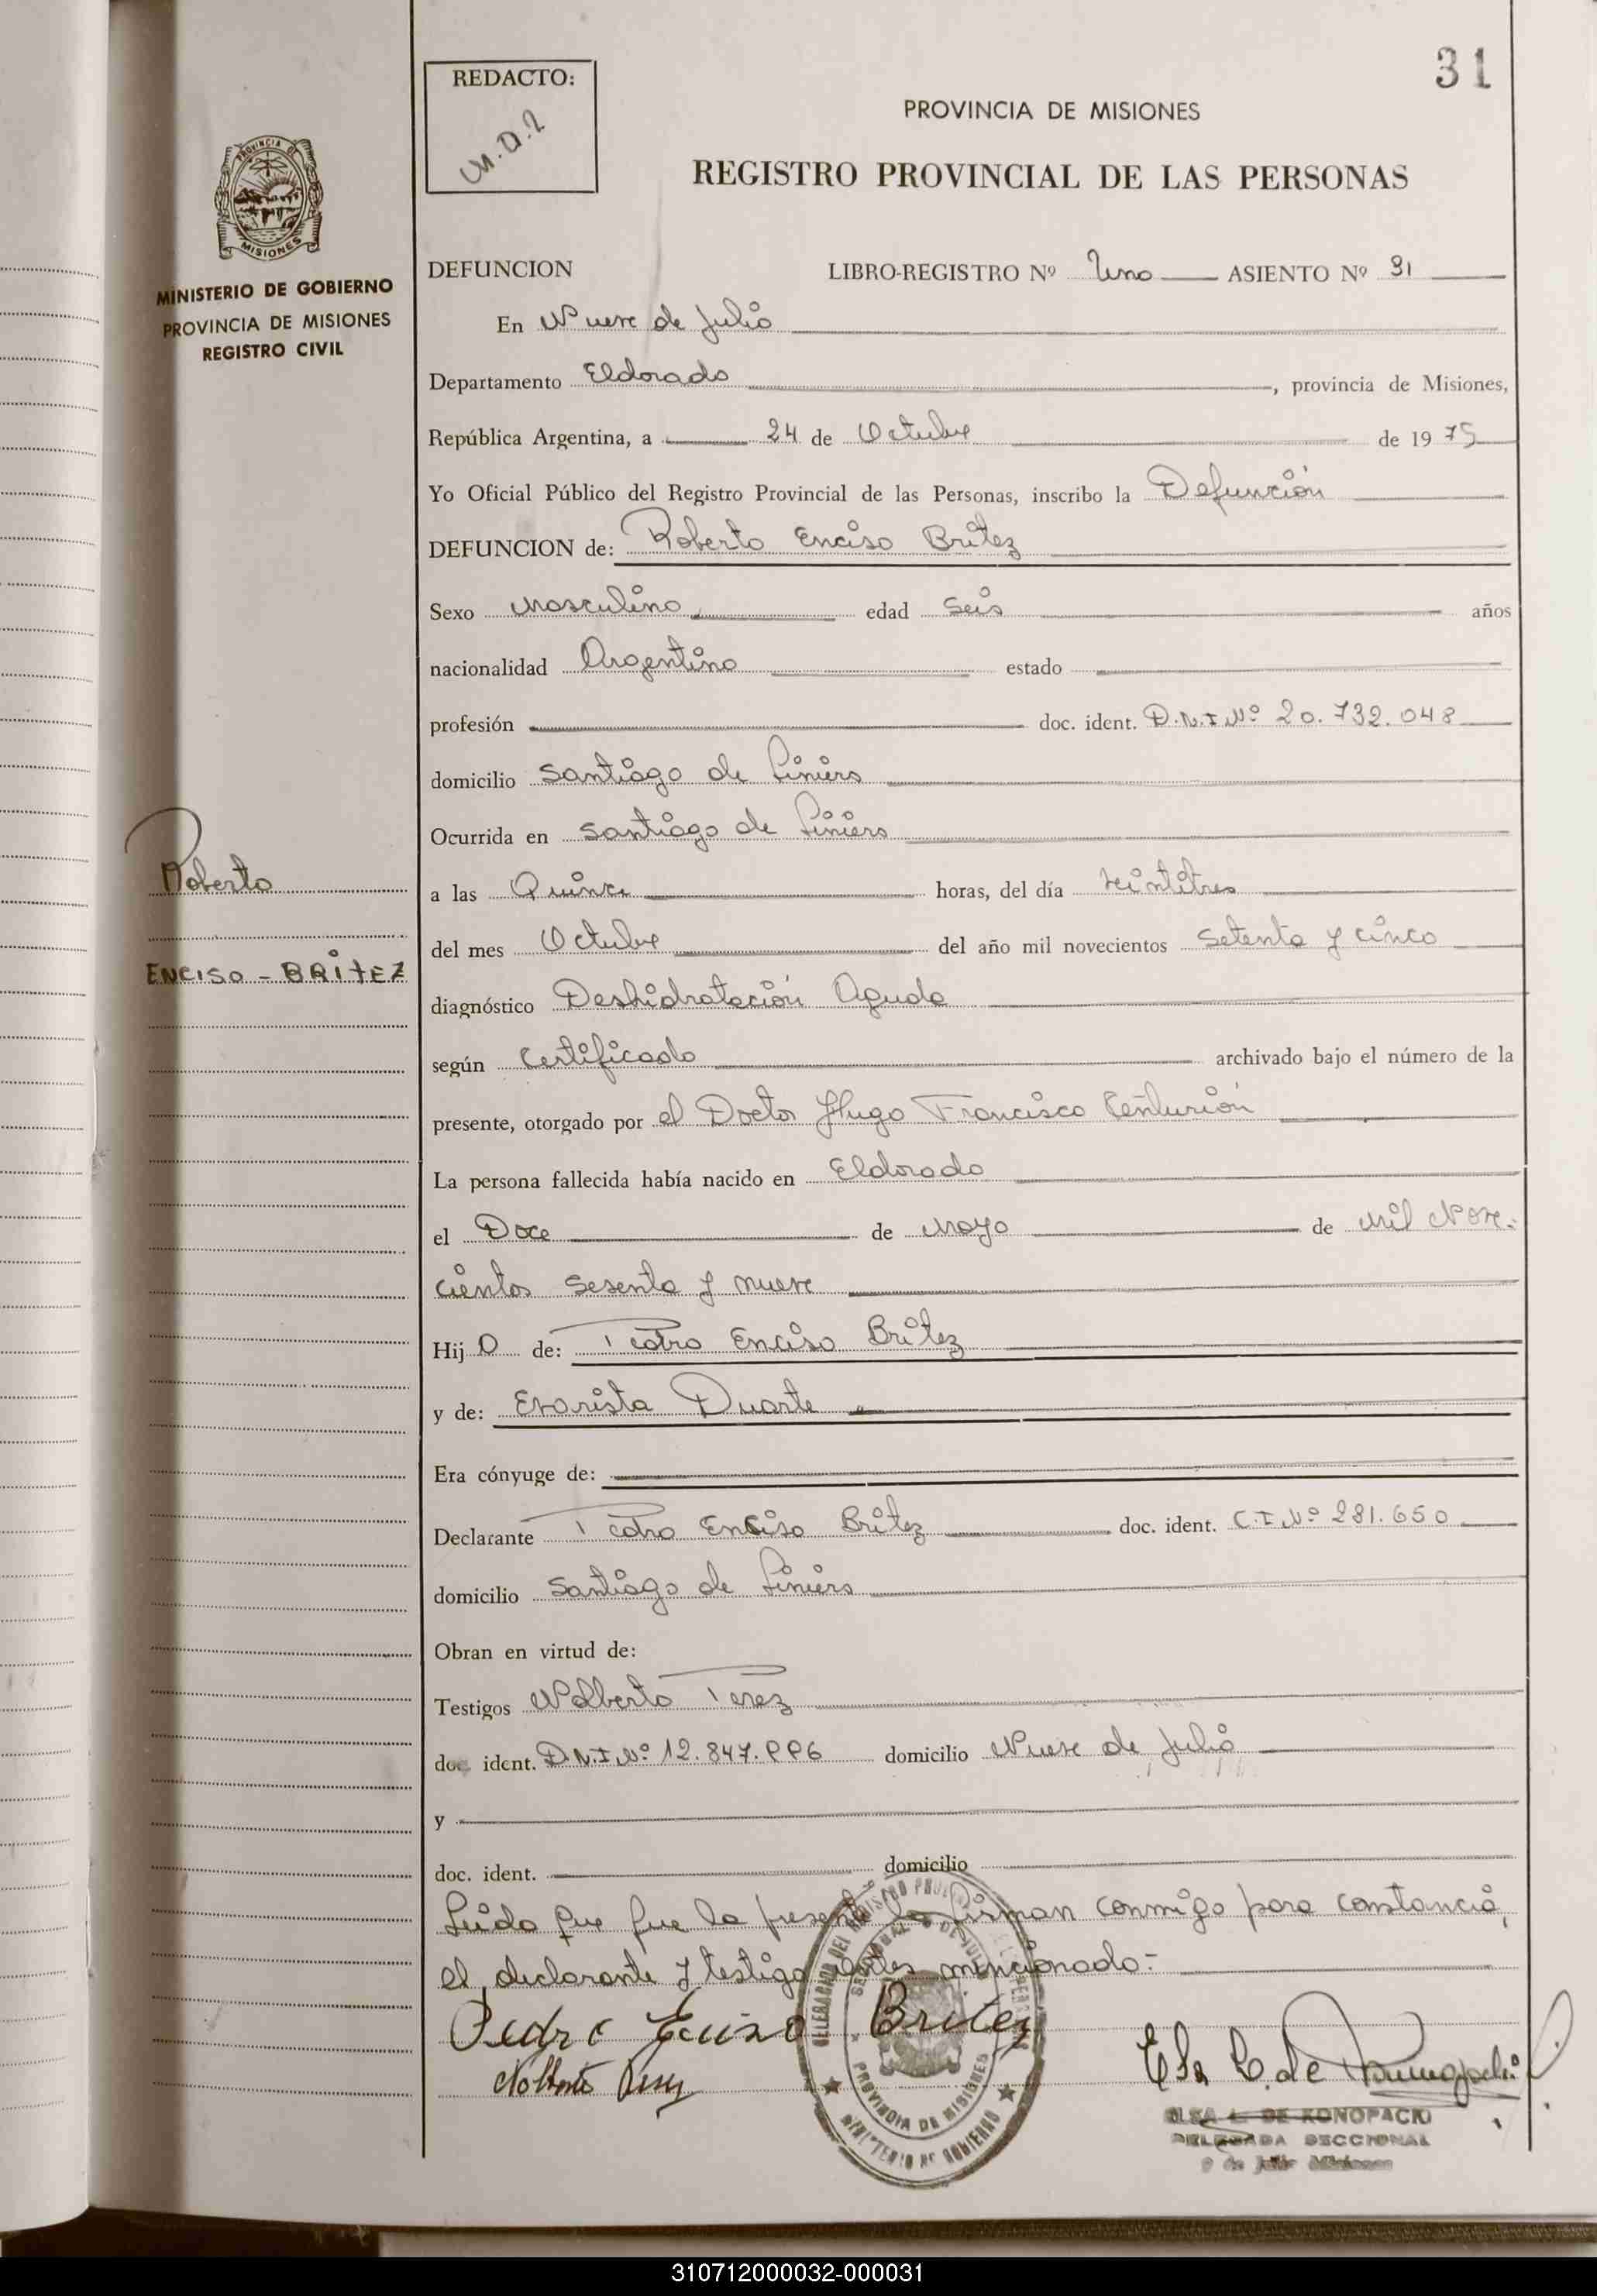 31
REDACTO:
PROVINCIA DE MISIONES
REGISTRO PROVINCIAL DE LAS PERSONAS
PROVINCIA DE
MISIONES
MINISTERIO DE GOBIERNO
PROVINCIA DE MISIONES
REGISTRO CIVIL
DEFUNCION LIBRO-REGISTRO Nº Uno ASIENTO Nº 31
En Nueve de Julio
Departamento Eldorado, provincia de Misiones,
República Argentina, a 24 de Octubre de 1975
Yo Oficial Público del Registro Provincial de las Personas, inscribo la Defunción
DEFUNCION de: Roberto Enciso Britez
Sexo Masculino edad Seis años
nacionalidad Argentino estado
profesión doc. ident. D.N.I Nº 20.732.048
domicilio Santiago de Liniers
Ocurrida en Santiago de Liniers
Roberto
a las Quince horas, del día Veintitres
del mes Octubre del año mil novecientos Setenta y cinco
ENCISO - BRITEZ
diagnóstico Deshidratación Aguda
según Certificado archivado bajo el número de la
presente, otorgado por el Doctor Hugo Francisco Centurión
La persona fallecida había nacido en Eldorado
el Doce de Mayo de Mil Nove-
cientos sesenta y nueve
Hijo de: Pedro Enciso Britez
y de: Evarista Duarte
Era cónyuge de:
Declarante Pedro Enciso Britez doc. ident. C.I Nº 281.650
domicilio Santiago de Liniers
Obran en virtud de:
Testigos Nolberto Perez
doc. ident. D.N.I Nº 12.847.996 domicilio Nueve de Julio
y
doc. ident. domicilio
Leida que fue la presente la firman conmigo para constancia,
el declarante y testigo antes mencionado.-
Pedro Enciso Britez
Nolberto Perez
PROVINCIA DE MISIONES
MINISTERIO DE GOBIERNO
ELSA L. DE KONOPACKI
DELEGADA SECCIONAL
9 de Julio Misiones
310712000032-000031